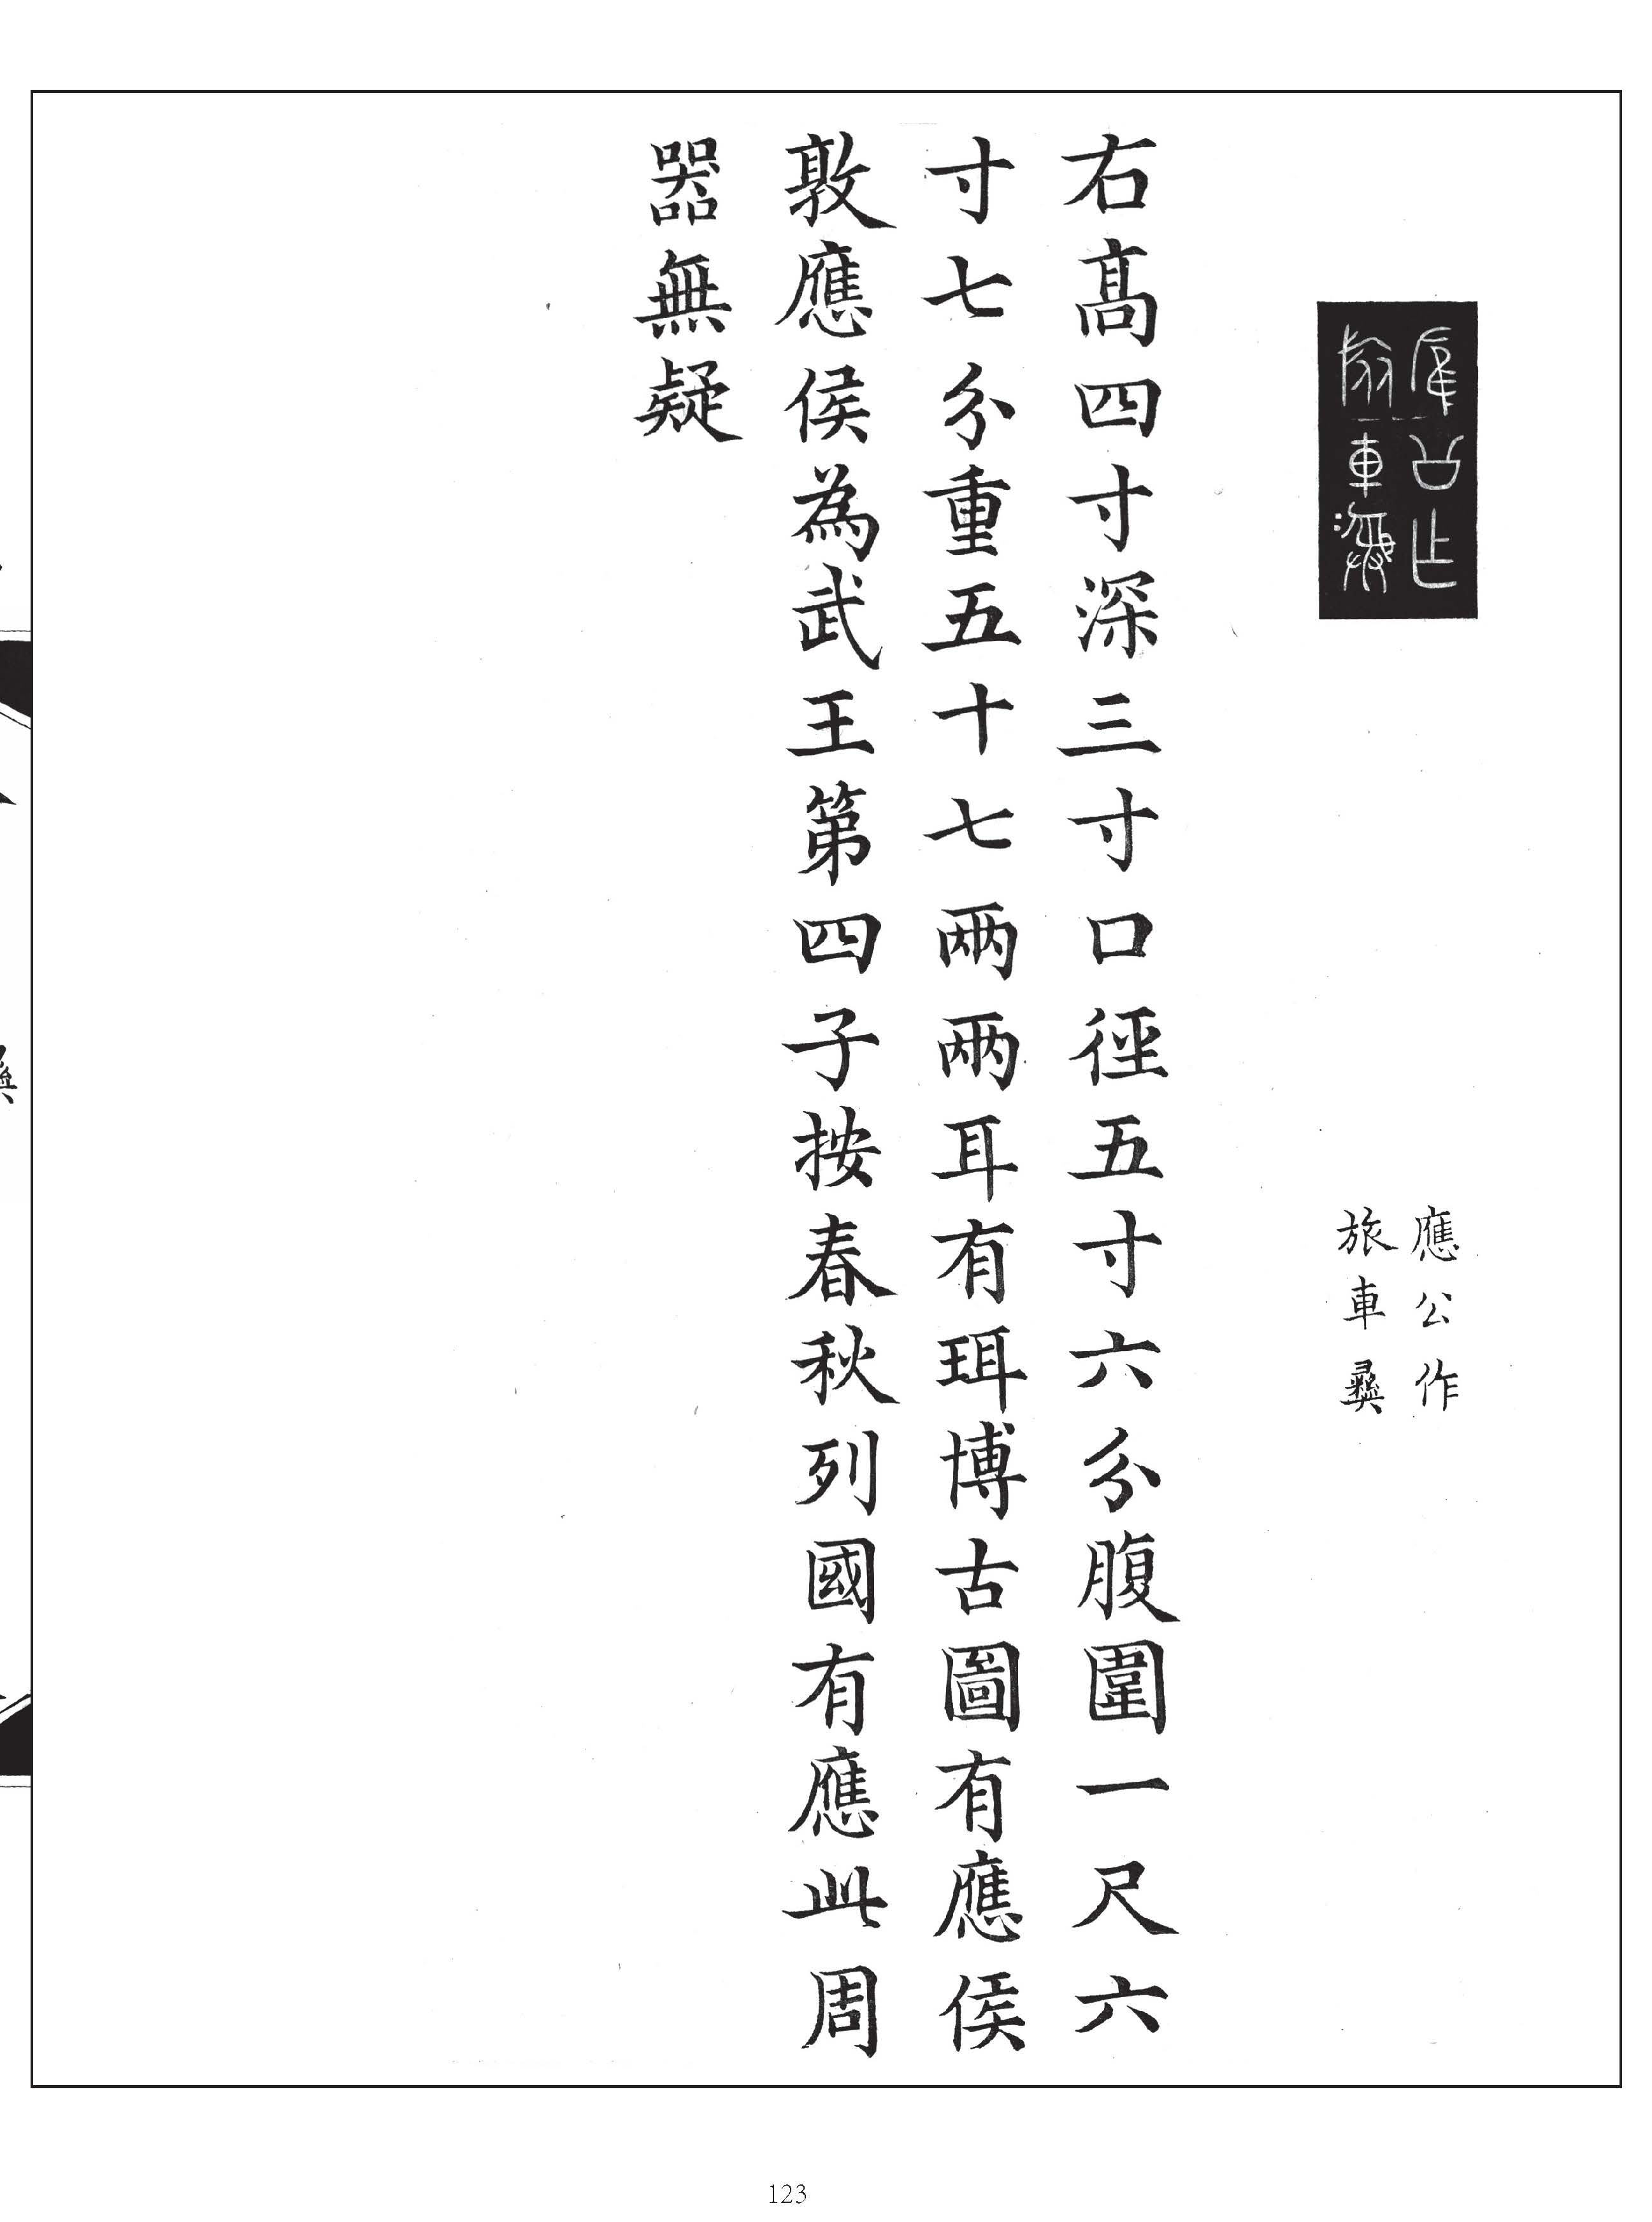 應公作
旅車彝
右高四寸深三寸口徑五寸六分腹圍一尺六
寸七分重五十七兩兩耳有珥博古圖有應侯
敦應侯為武王第四子按春秋列國有應此周
器無疑
123